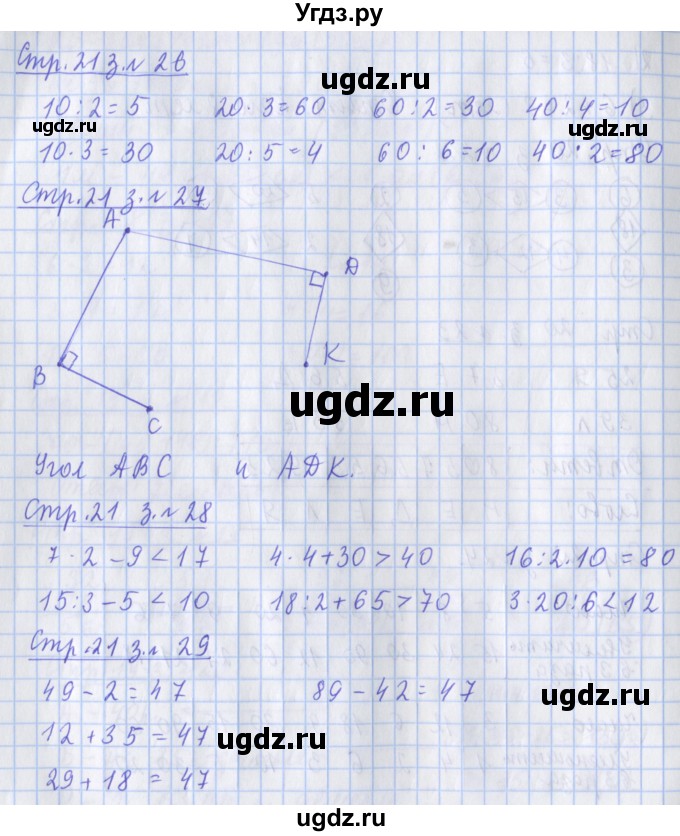 Угдз.ру
Стр. 21 з.№ 26
ugdz.ru
10 : 2 = 5 20 · 3 = 60 60 : 2 = 30 40 : 4 = 10
ugdz.ru ugdz.ru
10 · 3 = 30 20 : 5 = 4 60 : 6 = 10 40 · 2 = 80
Стр. 21 з.№ 27
A
D
K
B
ugdz.ru
C
Угол ABC и ADK.
ugdz.ru
Стр. 21 з.№ 28
7 · 2 - 9 < 17 4 · 4 + 30 > 40 16 : 2 · 10 = 80
15 : 3 - 5 < 10 18 : 2 + 65 > 70 3 · 20 : 6 < 12
ugdz.ru
Стр. 21 з.№ 29
49 - 2 = 47 89 - 42 = 47
ugdz.ru
12 + 35 = 47 ugdz.ru
29 + 18 = 47
ugdz.ru